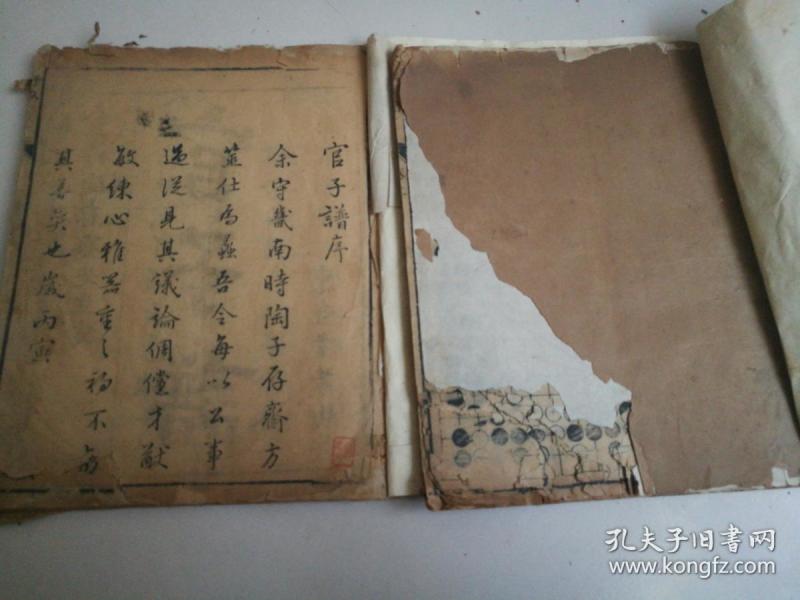 官子譜序
余守畿南時陶子存齋方
筮仕為蠡吾令每以公事
過從見其議論倜儻才猷
敏練心雅器重之初不知
其善奕也歲丙寅
孔夫子旧书网
www.kongfz.com